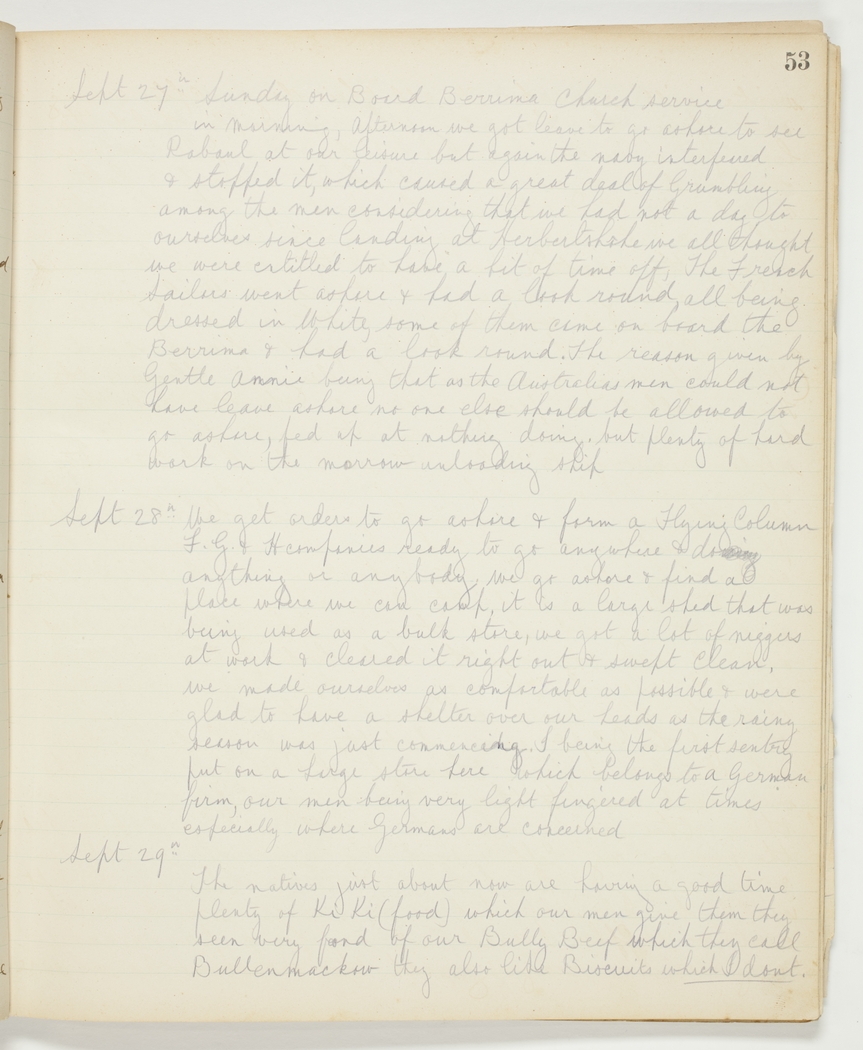 53
Sept 27th Sunday on Board Berrima Church service
in morning, afternoon we got leave to go ashore to see
Rabaul at our leisure but again the navy interfered
& stopped it, which caused a great deal of Grumbling
among the men considering that we had not a day to
ourselves since landing at Herbertshohe we all thought
we were entitled to have a bit of time off, The French
Sailors went ashore & had a look round, all being
dressed in White, some of them came on board the
Berrima & had a look round. The reason given by
Gentle Annie being that as the Australias men could not
have leave ashore no one else should be allowed to
go ashore, fed up at nothing doing. but plenty of hard
work on the morrow unloading ship
Sept 28th We get orders to go ashore & form a Flying Column
F. G. & H companies ready to go anywhere & do
anything or anybody, we go ashore & find a
place where we can camp, it is a large shed that was
being used as a bulk store, we got a lot of niggers
at work & cleared it right out & swept clean,
we made ourselves as comfortable as possible & were
glad to have a shelter over our heads as the rainy
season was just commencing. I being the first sentry
put on a large store here which belongs to a German
firm, our men being very light fingered at times
especially where Germans are concerned
Sept 29th
The natives just about now are having a good time
plenty of Ki Ki (food) which our men give them they
seem very fond of our Bully Beef which they call
Bullenmackow they also like Biscuits which I dont.